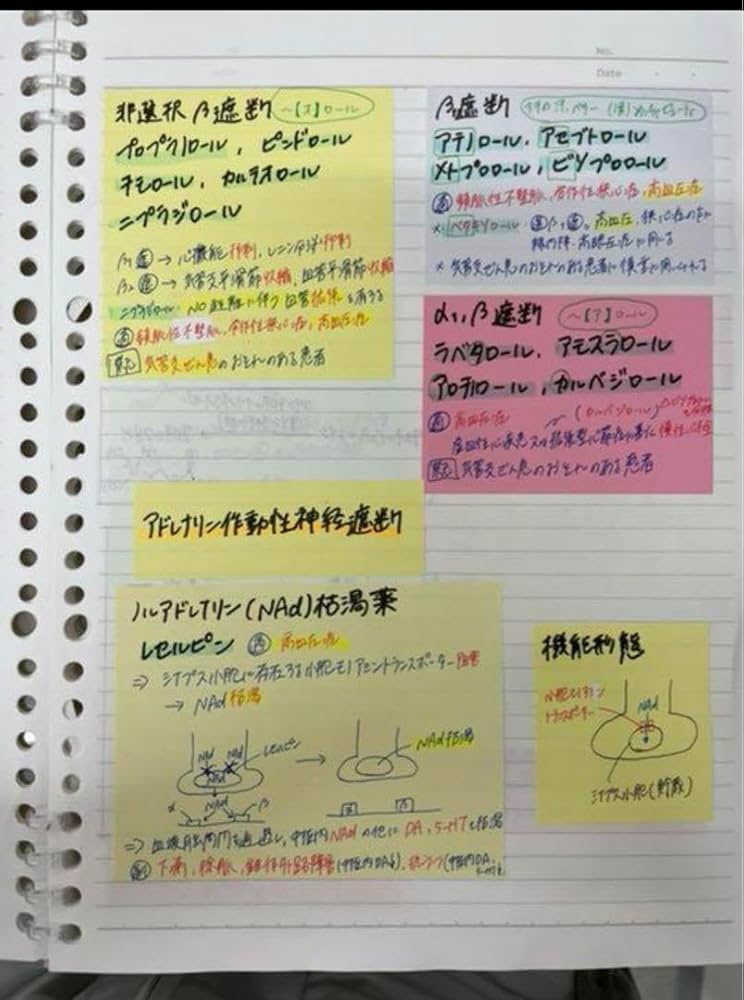 No.
Date
非選択 β遮断 〜【ヌ】ロール
プロプラノロール, ピンドロール
チモロール, カルテオロール
ニプラジロール
β1遮 → 心機能抑制, レニン分泌抑制
β2遮 → 気管支平滑筋収縮, 血管平滑筋収縮
ニプラジロール NO遊離に伴う血管拡張を有する
適 頻脈性不整脈, 労作性狭心症, 高血圧症
禁忌 気管支ぜん息のおそれのある患者
β1遮断
アテノロール, アセブトロール
メトプロロール, ビソプロロール
適 頻脈性不整脈, 労作性狭心症, 高血圧症
* ベタキソロール 高血圧, 狭心症の
緑内障, 高眼圧症に用いる
* 気管支ぜん息のおそれのある患者に慎重に用いられる
α1, β遮断 〜【ア】ロール
ラベタロール, アモスラロール
アロチノロール, カルベジロール
適 高血圧症 (カルベジロール)
虚血性心疾患又は拡張型心筋症に基づく慢性心不全
禁忌 気管支ぜん息のおそれのある患者
アドレナリン作動性神経遮断
ノルアドレナリン(NAd)枯渇薬
レセルピン 適 高血圧症
⇒ シナプス小胞に存在する小胞モノアミントランスポーター阻害
→ NAd枯渇
NAd NAd レセルピン
NAd
NAd枯渇
α NAd β
α β
⇒ 血液脳関門を通過し, 中枢内NAdの他にDA, 5-HTも枯渇
副 下痢, 徐脈, 錐体外路障害(中枢内DA↓), 抗うつ(中枢内DA,
5-HT↓
機能形態
小胞モノアミン
トランスポーター
NAd
シナプス小胞(貯蔵)